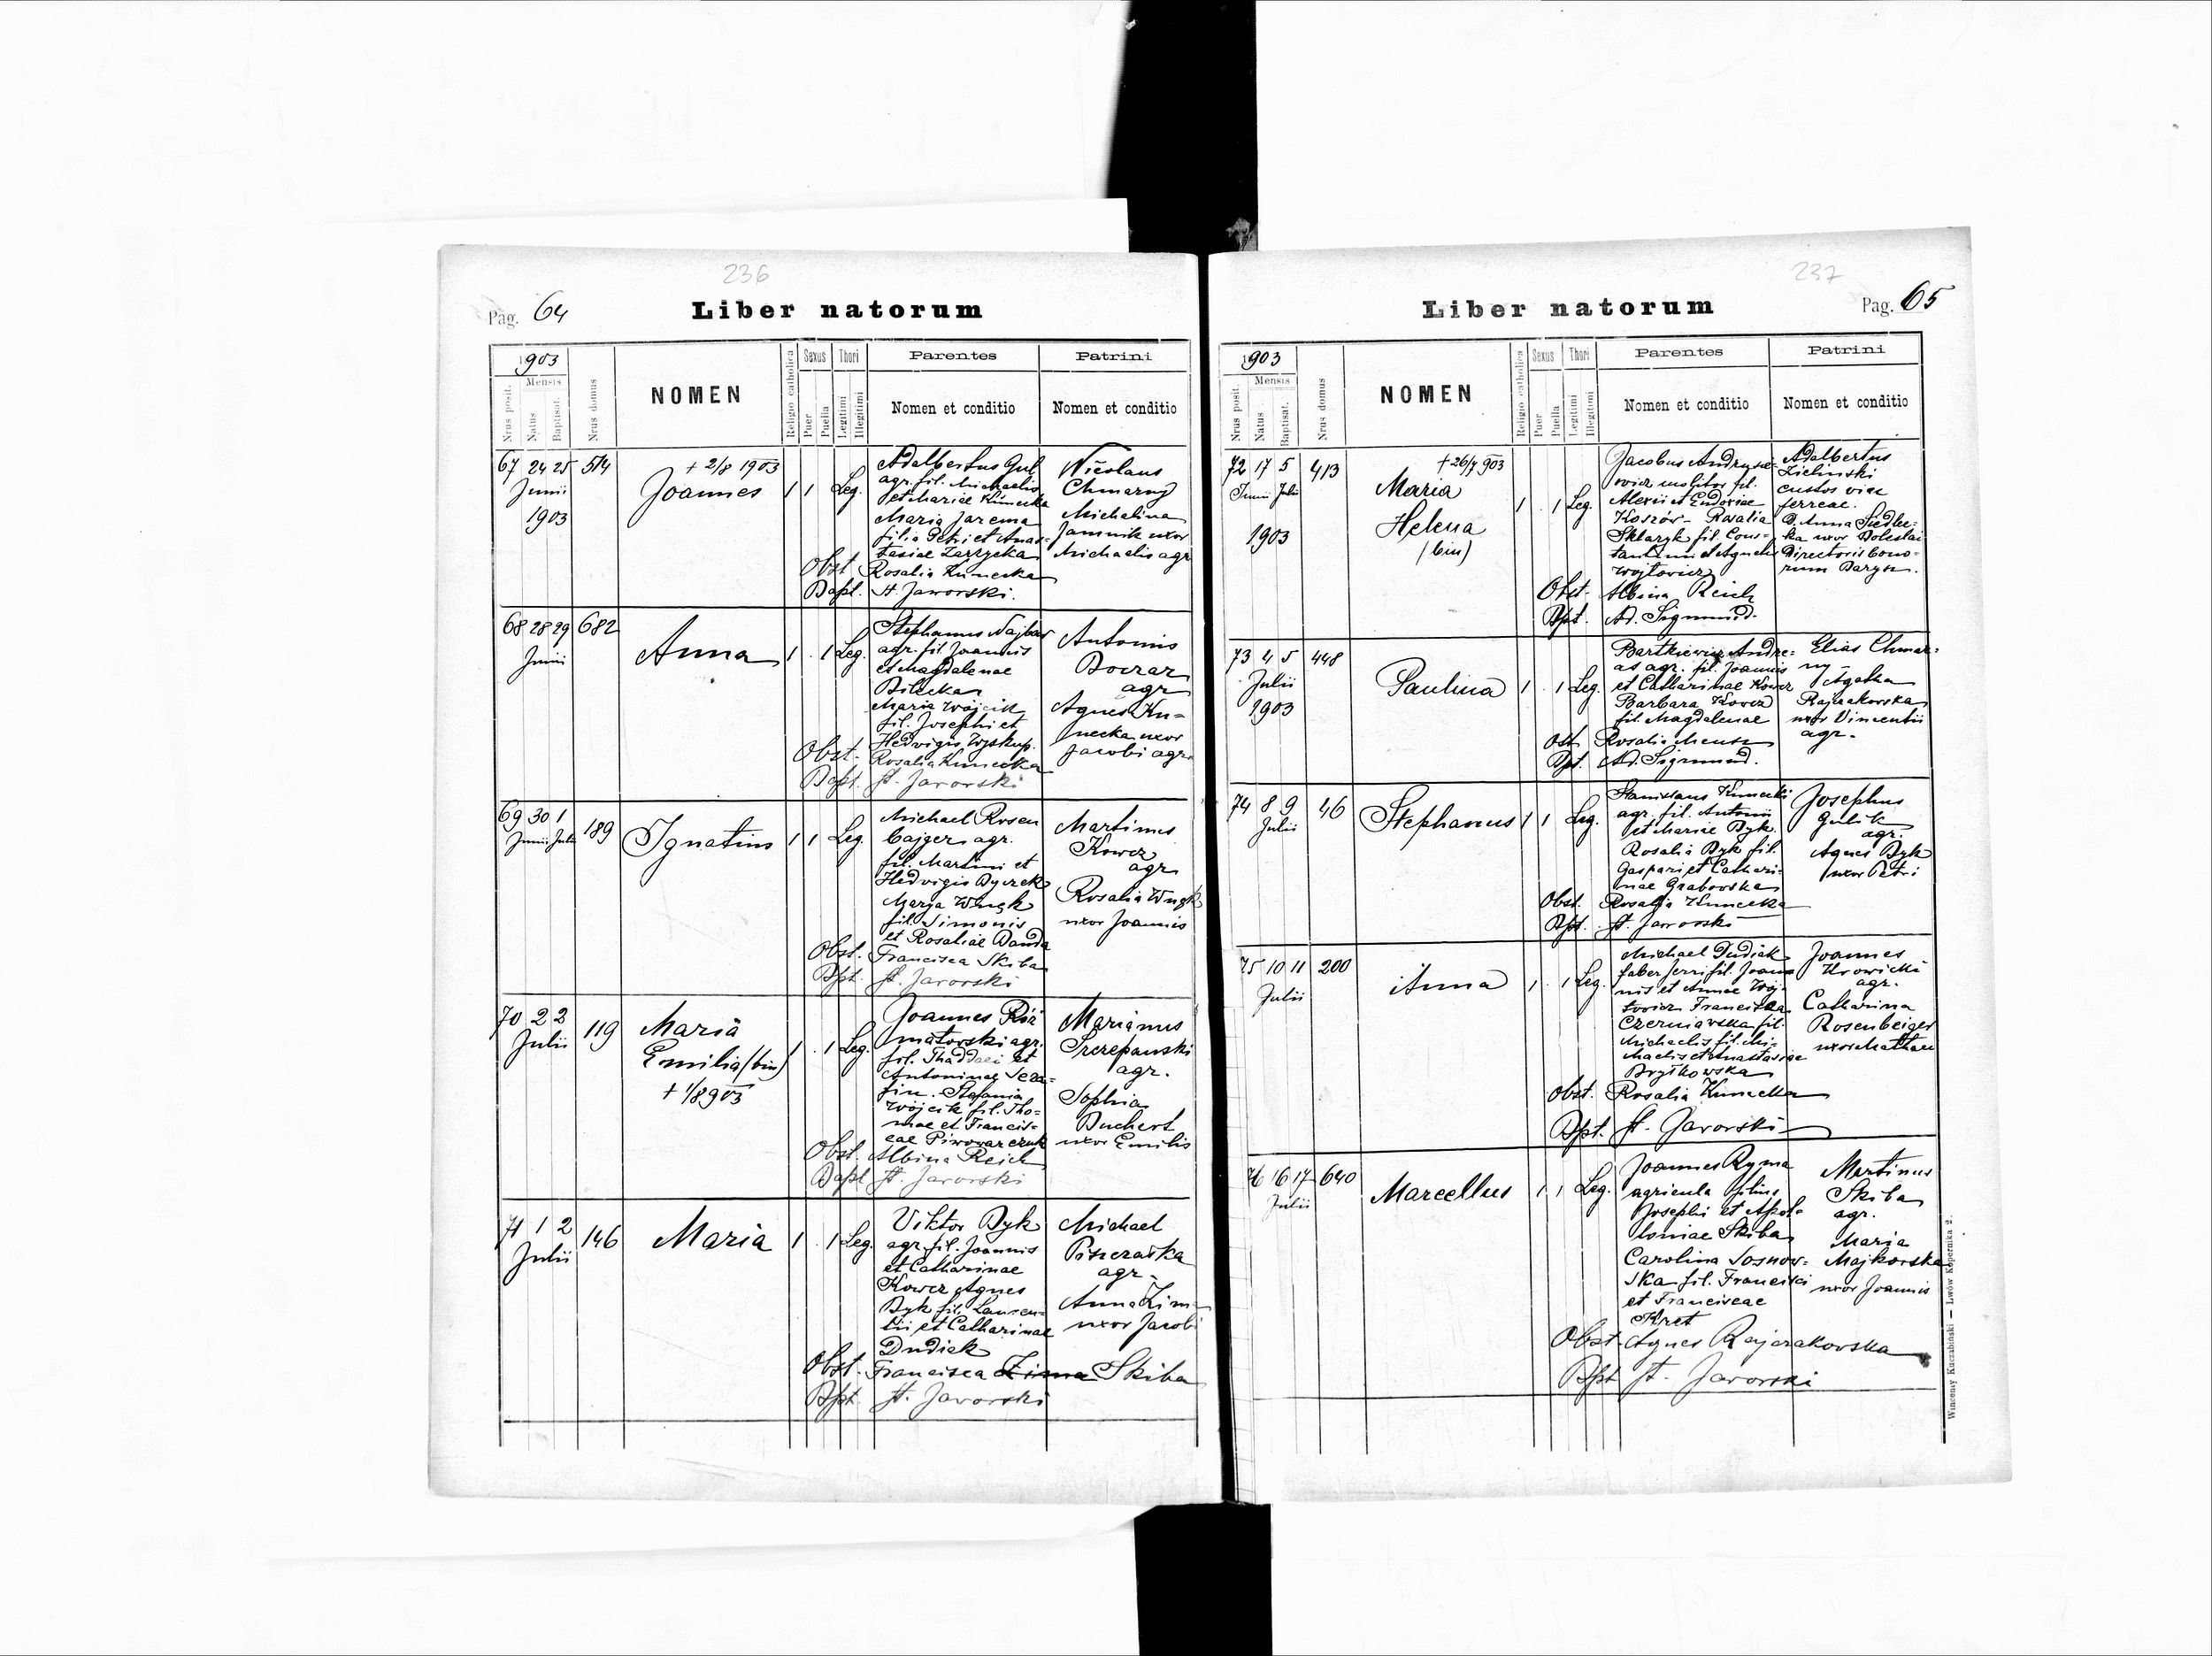 236
Pag. 64
Liber natorum
1903
Mensis
Nrus posit.
Natus
Baptisat.
Nrus domus
NOMEN
Religio catholica
Sexus
Puer
Puella
Thori
Legitimi
Illegitimi
Parentes
Nomen et conditio
Patrini
Nomen et conditio
67 24 25 514
Junii
1903
+ 2/8 1903
Joannes
1 1 Leg.
Adalbertus Gul
agr. fil. Michaelis
et Mariae Kunecka
Maria Jarema
filia Petri et Anas-
tasiae Zarzycka
Obst. Rosalia Kunecka
Bapt. St. Jaworski.
Nicolaus
Chmarny
Michalina
Jamnik uxor
Michaelis agr
68 28 29 682
Junii
Anna
1 1 Leg.
Stephanus Najbar
agr. fil. Joannis
et Magdalenae
Bilecka
Maria Wojcik
fil. Josephi et
Hedvigis Wyskup.
Obst. Rosalia Kunecka
Bapt. St. Javorski
Antonius
Boczar
agr
Agnes Ku-
necka uxor
Jacobi agr.
69 30 1 189
Junii Julii
Ignatius
1 1 Leg.
Michael Rosen
bajger agr.
fil. Martini et
Hedvigis Dyczek
Marya Wnęk
fil. Simonis
et Rosaliae Banda
Obst. Francisca Skiba
Bpt. St. Javorski
Martinus
Kowcz
agr
Rosalia Wnęk
uxor Joannis
70 2 2 119
Julii
Maria
Emilia (bin)
+ 1/8 903
1 1 Leg.
Joannes
matowski agr.
fil. Thaddaei et
Antoninae Sera-
fin. Stefania
Wojcik fil. Tho-
mae et Francis-
cae Piwowarczuk
Obst. Albina Reich
Bapt St. Javorski
Marianus
Szczepanski
agr.
Sophia
Buchert
uxor Emilis
71 1 2 146
Julii
Maria
1 1 Leg.
Viktor Byk
agr. fil. Joannis
et Catharinae
Kowcz Agnes
Byk fil. Lauren-
tii et Catharinae
Dudiek
Obst. Francisca Zima Skiba
Bpt. St. Javorski
Michael
agr.
Anna Zima
uxor Jacobi
237
Liber natorum
Pag. 65
1903
Mensis
Nrus posit.
Natus
Baptisat.
Nrus domus
NOMEN
Religio catholica
Sexus
Puer
Puella
Thori
Legitimi
Illegitimi
Parentes
Nomen et conditio
Patrini
Nomen et conditio
72 17 5 413
Junii Julii
1903
+ 26/7 903
Maria
Helena
(bin)
1 1 Leg.
Jacobus Andruse-
wicz molitor fil.
Alexii et Eudoxiae
Koszów - Rosalia
Sklaryk fil. Cons-
tantini et Agnetis
Wojtowicz
Obst. Albina Reich
Bpt. Ad. Sigmund.
Adalbertus
Zielinski
custos viae
ferreae.
D. Anna Siedlec-
ka uxor Boleslai
Directoris bono-
rum Barysz.
73 4 5 448
Julii
1903
Paulina
1 1 Leg.
Bartkiewicz Andre-
as agr. fil. Joannis
et Catharinae Kowcz
Barbara Kowcz
fil. Magdalenae
Ost. Rosalia
Bpt. Ad. Sigmund.
Elias Chmar-
ny
Agatha
Rajzakowska
uxor Vincentii
agr.
74 8 9 46
Julii
Stephanus
1 1 Leg.
Stanislaus Kunecki
agr. fil. Antonii
et Mariae Byk.
Rosalia Byk fil.
Gaspari et Cathari-
nae Grabowska
Obst. Rosalia Kunecka
Bpt. St. Javorski
Josephus
Gulik
agr.
Agnes Byk
uxor Petri
75 10 11 200
Julii
Anna
1 1 Leg.
Michael Dudiak
faber ferri fil. Joan-
nis et Annae Woj-
towicz Francisca
Czerniawska fil.
Michaelis fil. Mi-
chaelis et Anastasiae
Brytkowska
Obst. Rosalia Kunecka
Bpt. St. Javorski
Joannes
Krowicki
agr.
Catharina
Rosenbeiger
uxor Mathaei
76 16 17 640
Julii
Marcellus
1 1 Leg.
Joannes Ryma
agricola filius
Josephi et Apol-
loniae Skiba
Carolina Sosnow-
ska fil. Francisci
et Franciscae
Kret
Obst. Agnes Rajzakovska
Bpt St. Javorski
Martinus
Skiba
agr.
Maria
Majkowska
uxor Joannis
Wincenty Kuczabiński — Lwów Kopernika 2.